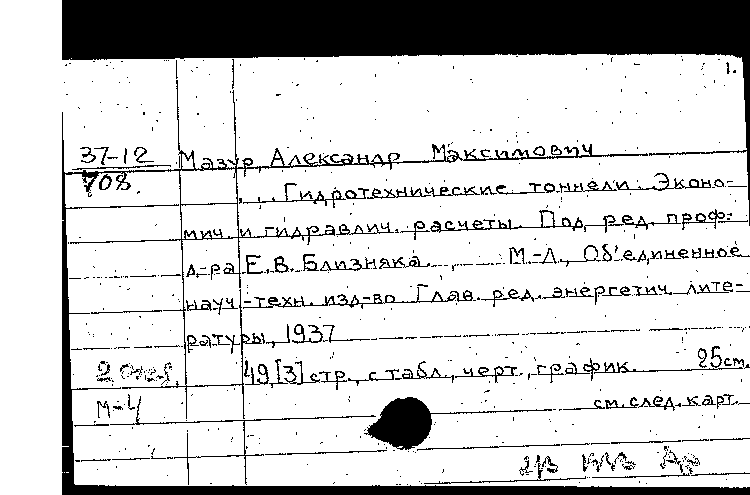 1.
37-12 Мазур, Александр Максимович
708.
... Гидротехнические тоннели. Эконо-
мич. и гидравлич. расчеты. Под ред. проф.
д-ра Е.В. Близняка. М.-Л., Об'единенное
науч.-техн. изд-во Глав. ред. энергетич. лите-
ратуры, 1937
49,[3] стр., с табл., черт., график. 25см.
М-4 см. след. карт.